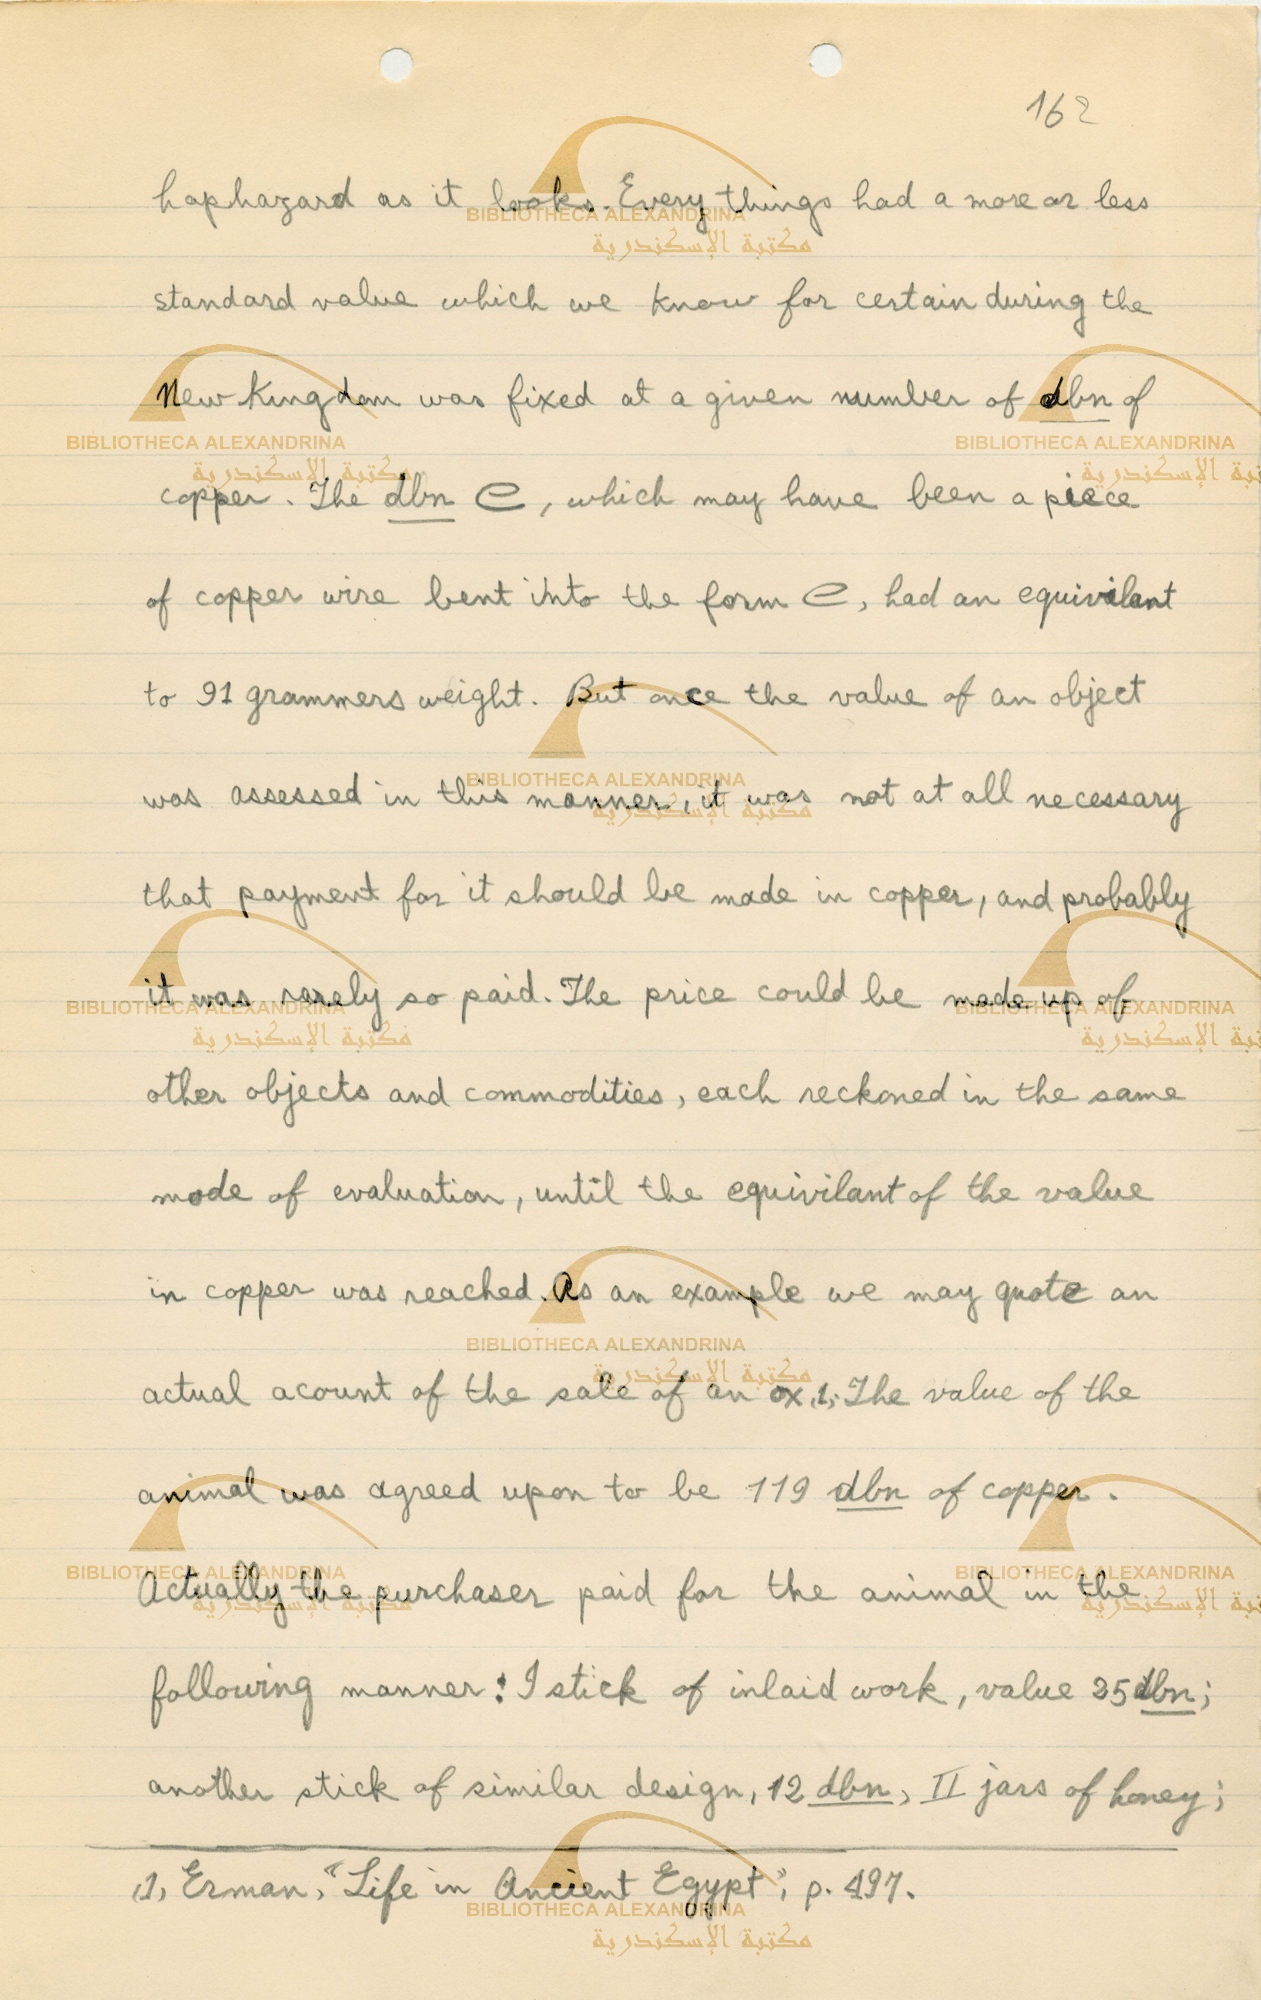 162
haphazard as it looks. Every things had a more or less
standard value which we know for certain during the
New Kingdom was fixed at a given number of dbn of
copper. The dbn , which may have been a piece
of copper wire bent into the form , had an equivilant
to 91 grammers weight. But once the value of an object
was assessed in this manner, it was not at all necessary
that payment for it should be made in copper, and probably
it was rarely so paid. The price could be made up of
other objects and commodities, each reckoned in the same
mode of evaluation, until the equivilant of the value
in copper was reached. As an example we may quote an
actual acount of the sale of an ox,1, The value of the
animal was agreed upon to be 119 dbn of copper.
Actually the purchaser paid for the animal in the
following manner: I stick of inlaid work, value 25 dbn;
another stick of similar design, 12 dbn, II jars of honey;
,1, Erman, "Life in Ancient Egypt", p. 497.
BIBLIOTHECA ALEXANDRINA
مكتبة الإسكندرية